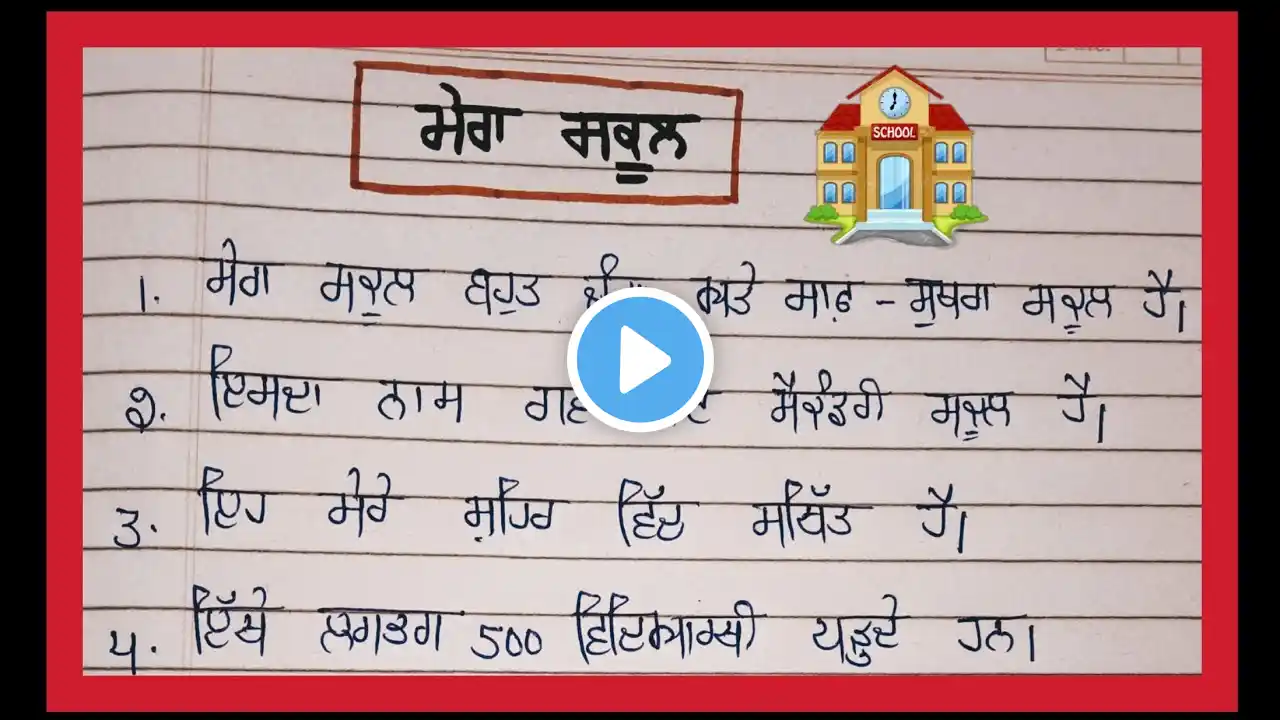 ਮੇਰਾ ਸਕੂਲ
SCHOOL
1. ਮੇਰਾ ਸਕੂਲ ਬਹੁਤ ਅਤੇ ਸਾਫ਼ - ਸੁਥਰਾ ਸਕੂਲ ਹੈ।
੨. ਇਸਦਾ ਨਾਮ ਸੈਕੰਡਰੀ ਸਕੂਲ ਹੈ।
੩. ਇਹ ਮੇਰੇ ਸ਼ਹਿਰ ਵਿੱਚ ਸਥਿੱਤ ਹੈ।
੪. ਇੱਥੇ ਲਗਭਗ 500 ਵਿਦਿਆਰਥੀ ਪੜ੍ਹਦੇ ਹਨ।